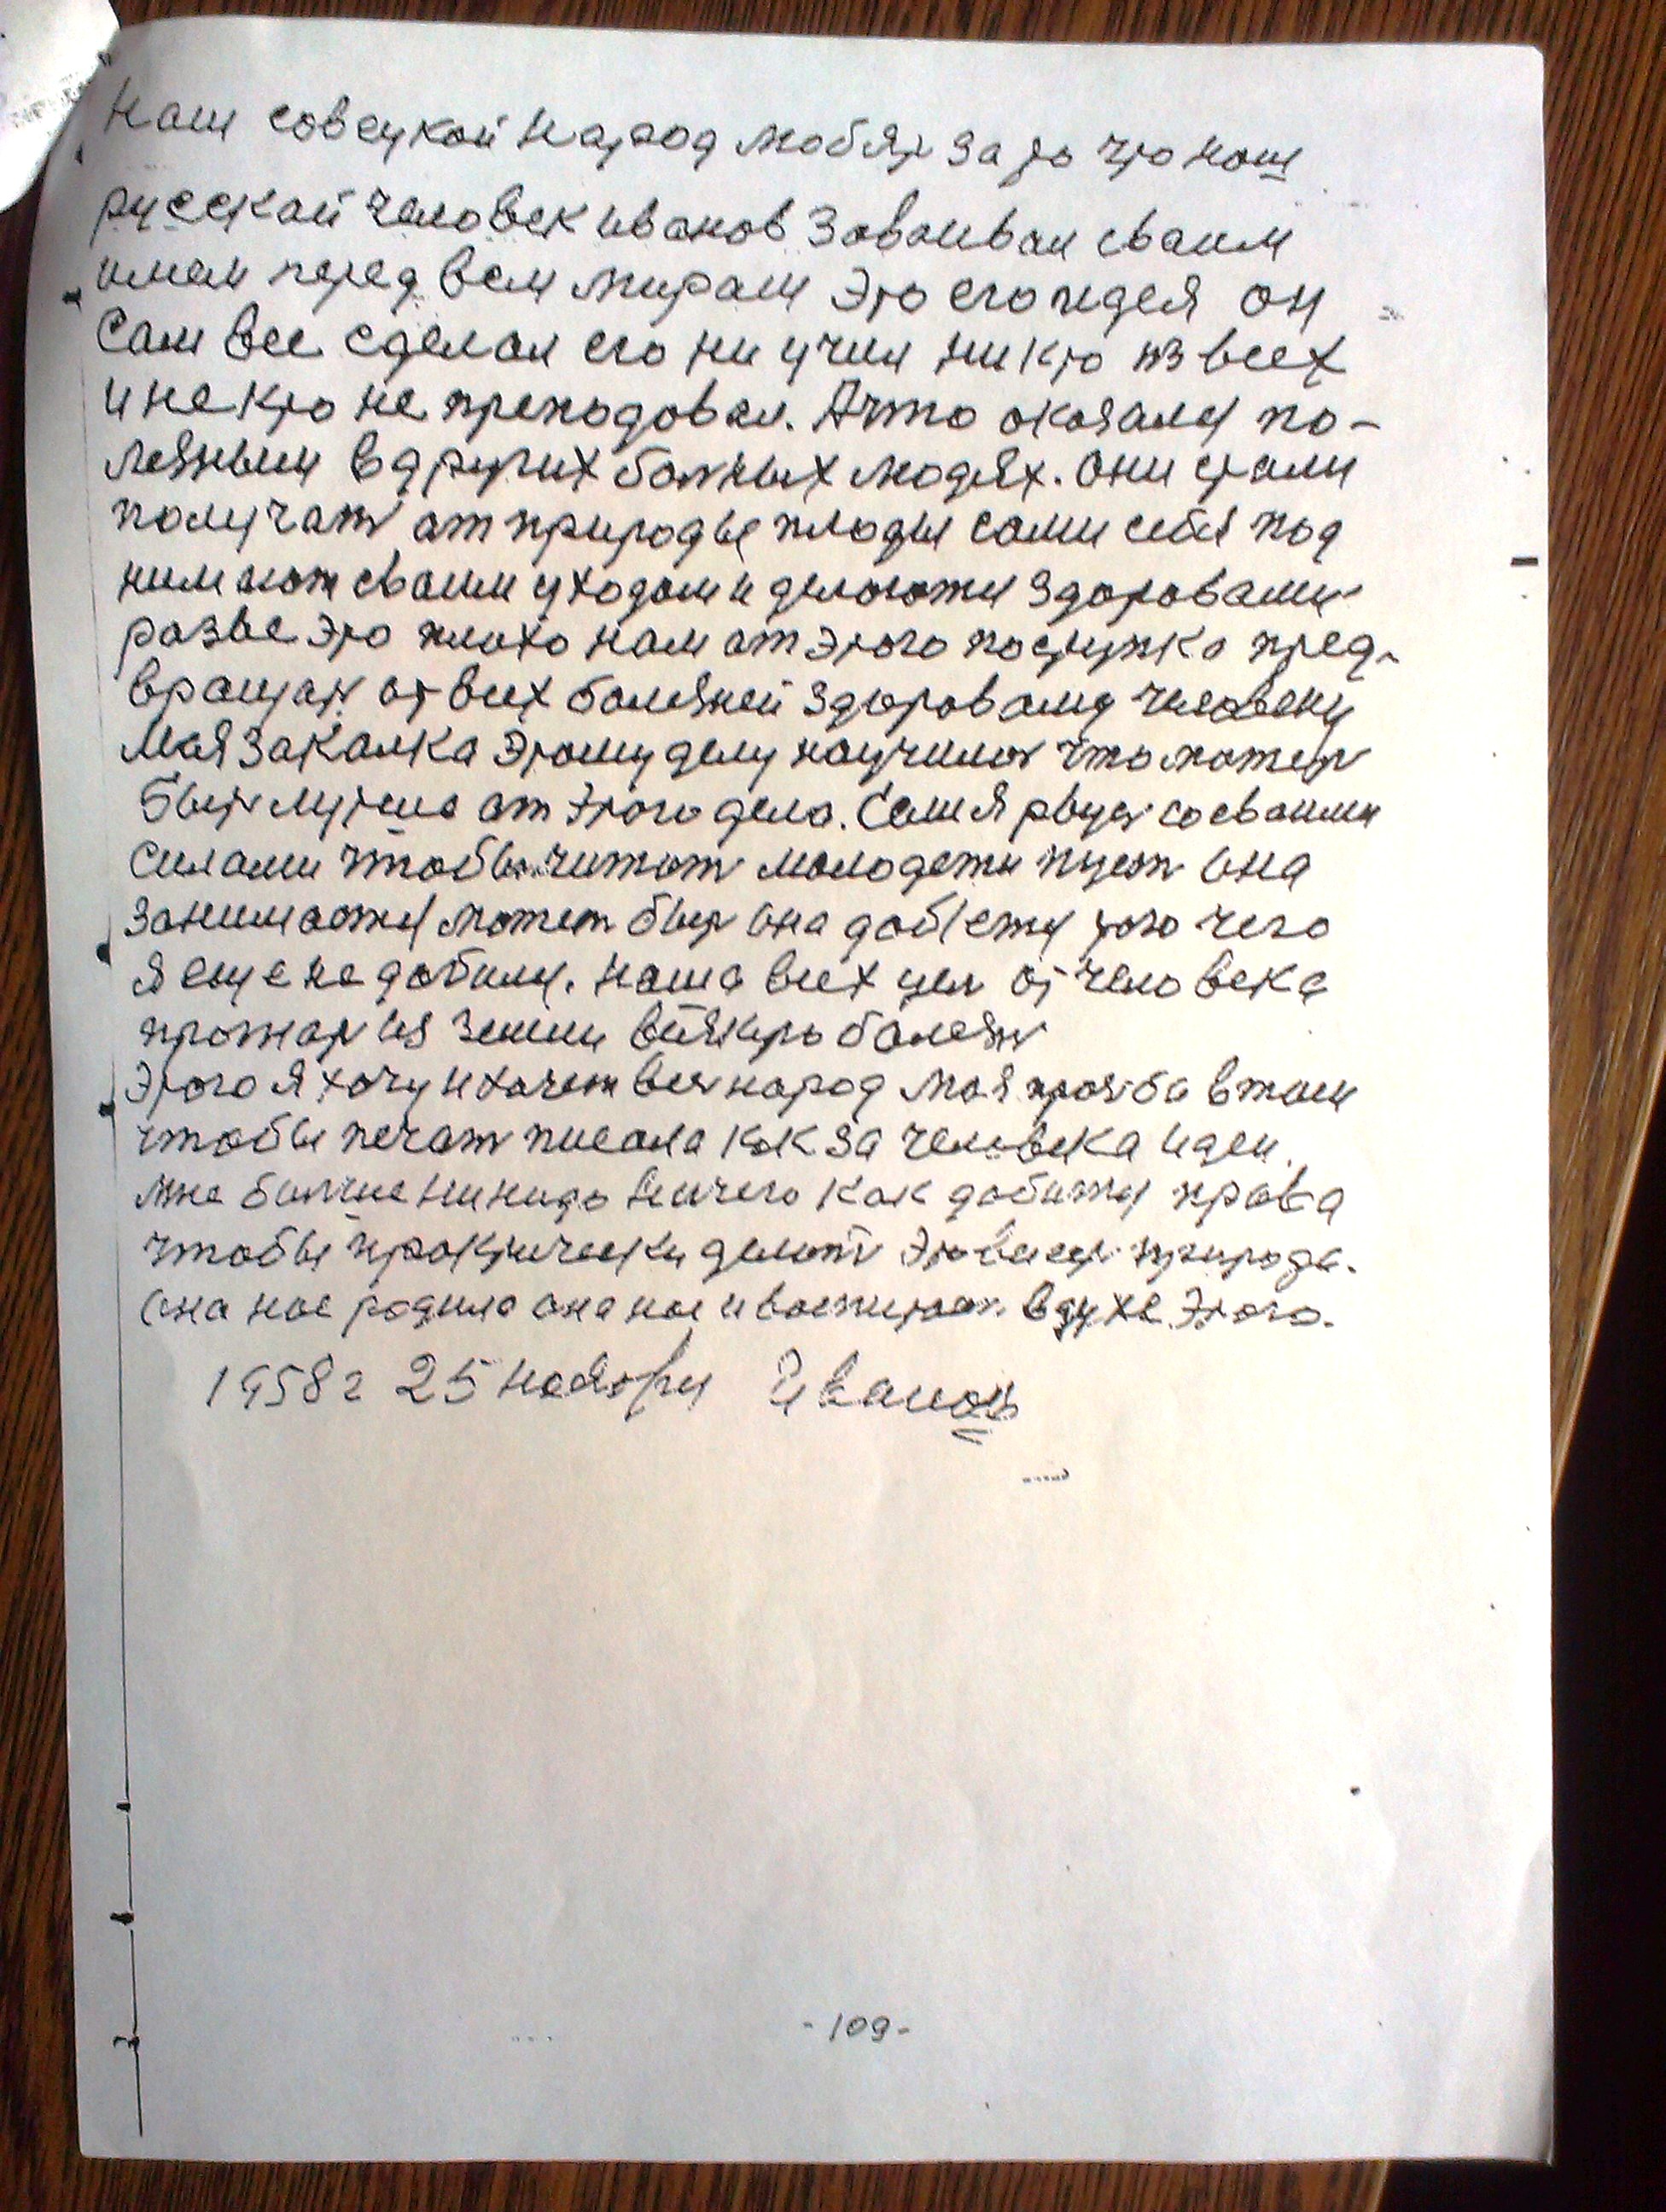 Наш совецкой народ любят за то что наш
русской человек иванов Завоивал сваим
имем перед всем мирам Это его идея он
Сам все сделал его ни учил никто из всех
и не кто не преподовал. А что оказалс по-
лезным в других больных людях. Они стали
получать ат природы плоды сами себя под
нимают сваим уходам и делаютси здоровами
развы это плохо нам ат этого поступка пред-
вращать от всех болезней здороваму человеку
Мая Закалка Этому делу научилась что может
быть лутше ат этого дела. Сам я рвусь со сваими
Силами чтобы читать молодежи пуст она
занимаетси может быть она добетси того чего
я еще не добилси. наша всех цел от человека
прогнать из земли болезнь
Этого я хочу и хочет весь народ Моя прозба в том
чтобы печать писала как за человека идеи.
мне болше ни надо ничего как добитси права
чтобы практически делать Это природа.
Она нас родила она нас и воспитает в духе Этого.
1958 г 25 ноября Иванов
- 109 -